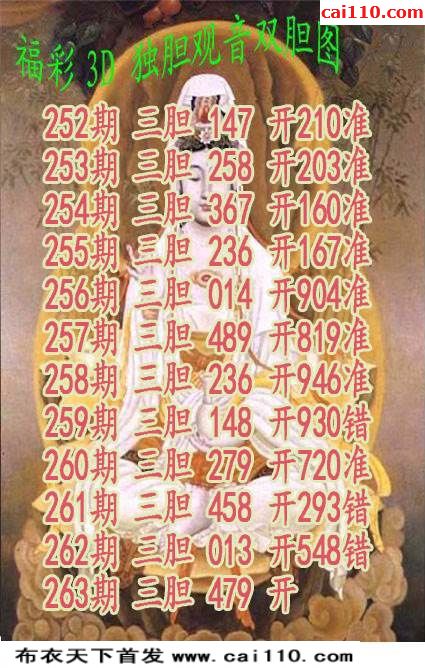 cai110.com
福彩3D 独胆观音双胆图
252期 三胆 147 开210准
253期 三胆 258 开203准
254期 三胆 367 开160准
255期 三胆 236 开167准
256期 三胆 014 开904准
257期 三胆 489 开819准
258期 三胆 236 开946准
259期 三胆 148 开930错
260期 三胆 279 开720准
261期 三胆 458 开293错
262期 三胆 013 开548错
263期 三胆 479 开
布衣天下首发 www.cai110.com